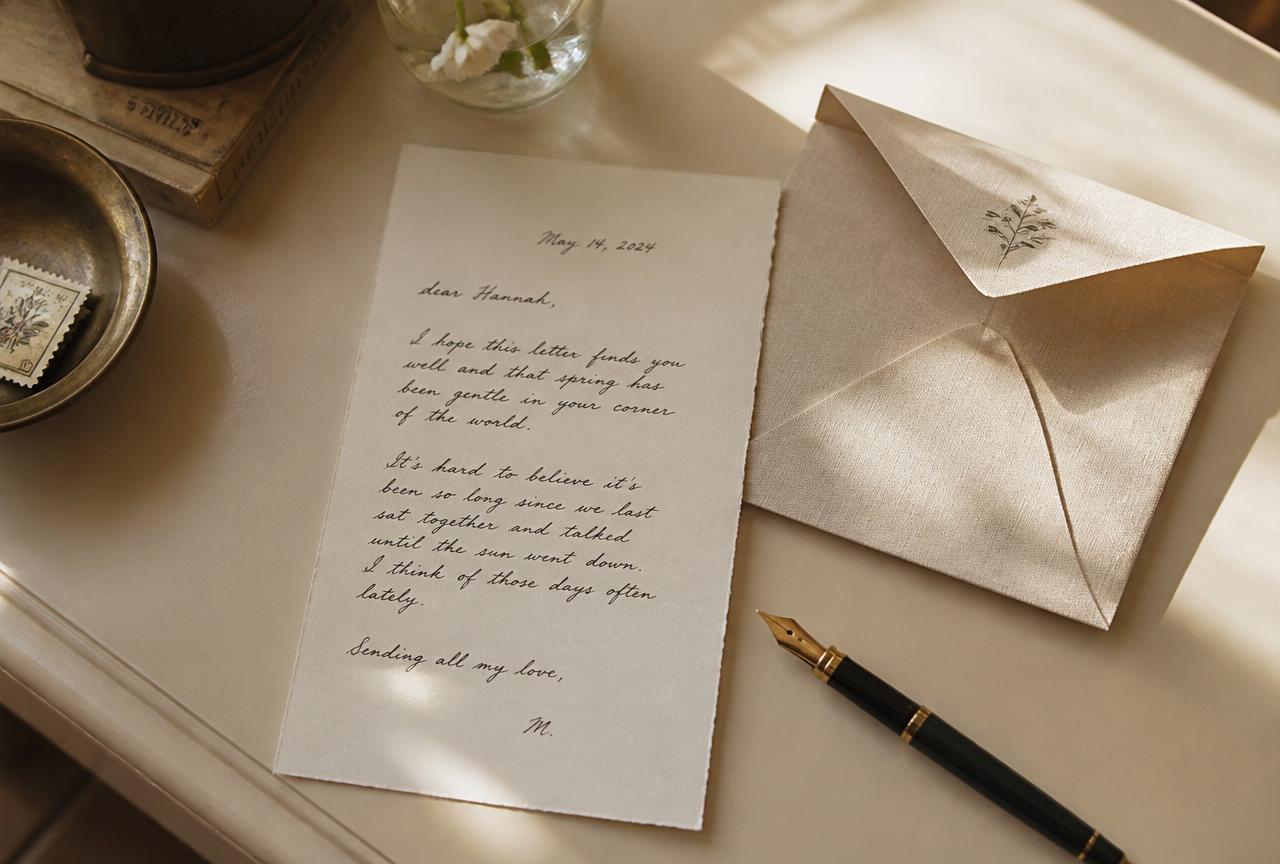 May 14, 2024
dear Hannah,
I hope this letter finds you
well and that spring has
been gentle in your corner
of the world.
It's hard to believe it's
been so long since we last
sat together and talked
until the sun went down.
I think of those days often
lately.
Sending all my love,
M.